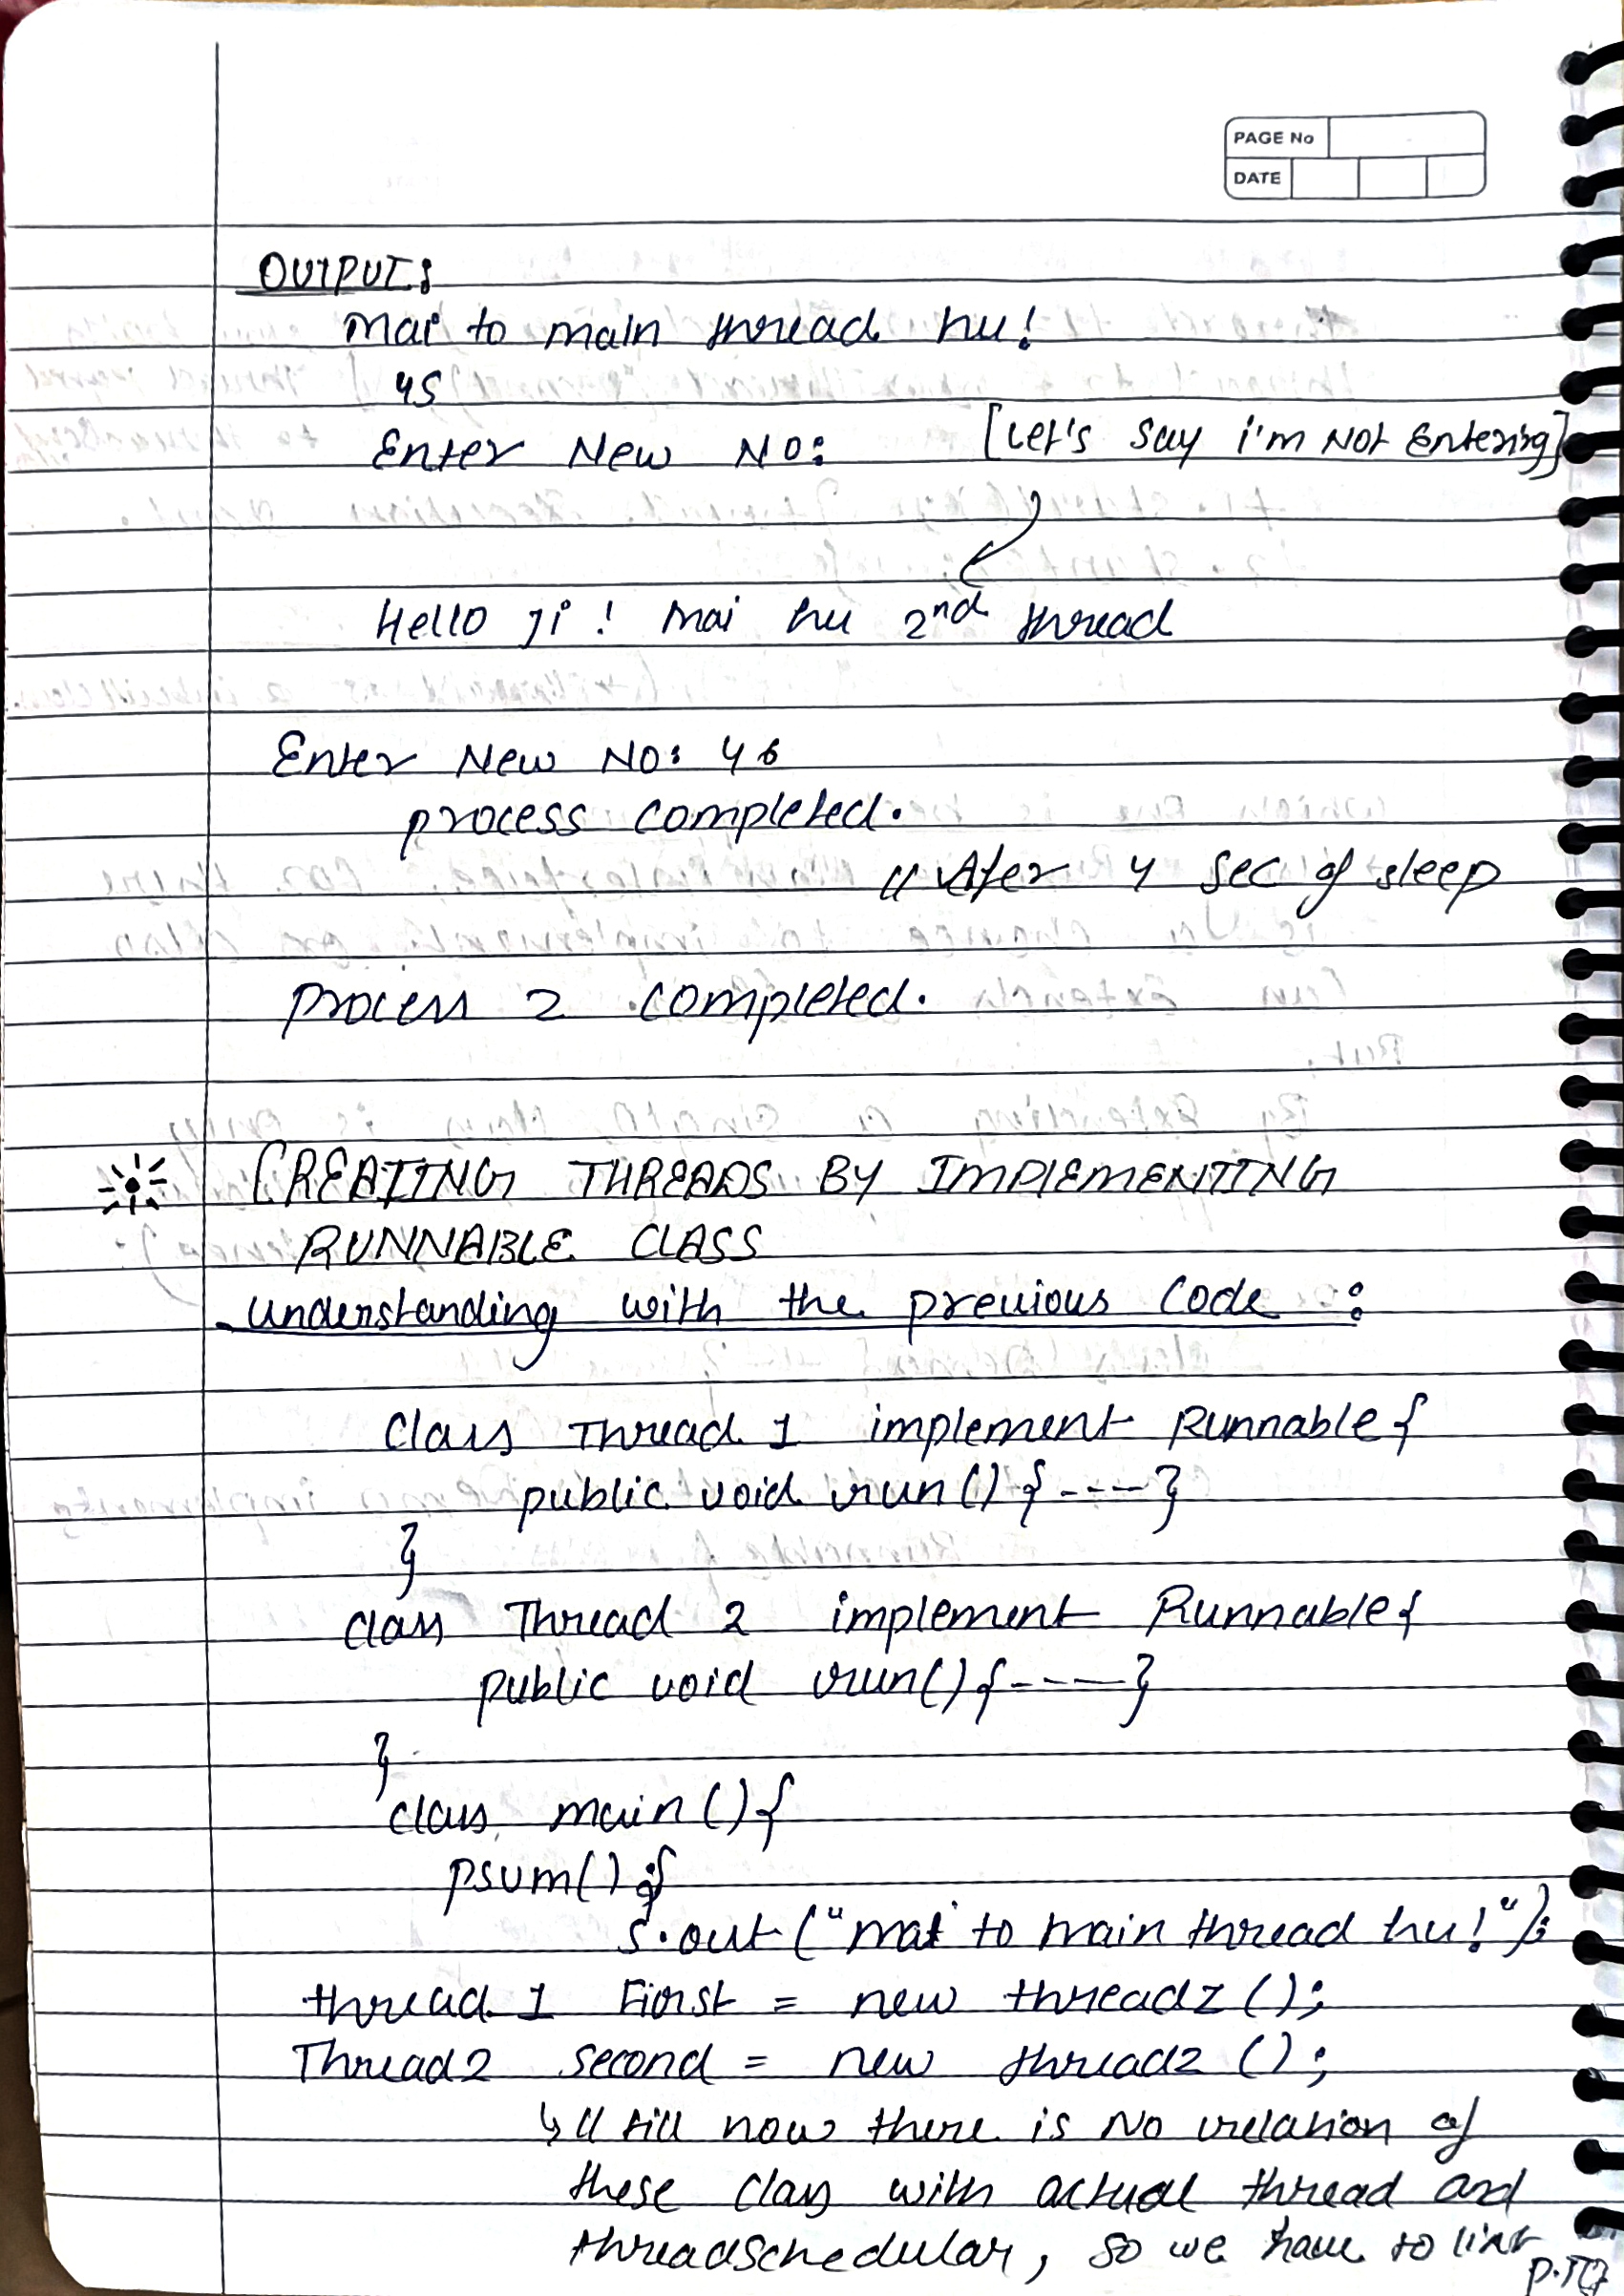 PAGE No
DATE
OUTPUT:
Mai to main thread hu!
45
Enter New No: [Let's say i'm Not Entering]
Hello ji! Mai hu 2nd thread
Enter New No: 46
process completed.
// After 4 sec of sleep
process 2 completed.
CREATING THREADS BY IMPLEMENTING
RUNNABLE CLASS
understanding with the previous code :
class Thread 1 implement Runnable{
public void run() { ---- }
}
class Thread 2 implement Runnable{
public void run() { ---- }
}
class main() {
psvm() {
S.out ("mai to main thread hu!");
thread 1 First = new thread1 ();
Thread2 second = new thread2 ();
↳ // till now there is No relation of
these class with actual thread and
threadschedular, so we have to link
P.T.O